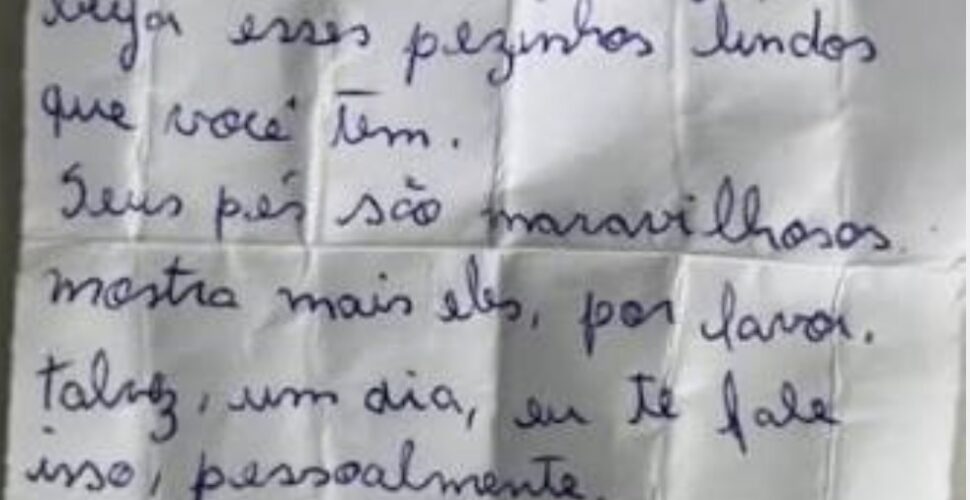 esses pezinhos lindos
que você tem.
Seus pés são maravilhosos.
mostra mais eles, por favor.
talvez, um dia, eu te fale
isso, pessoalmente.